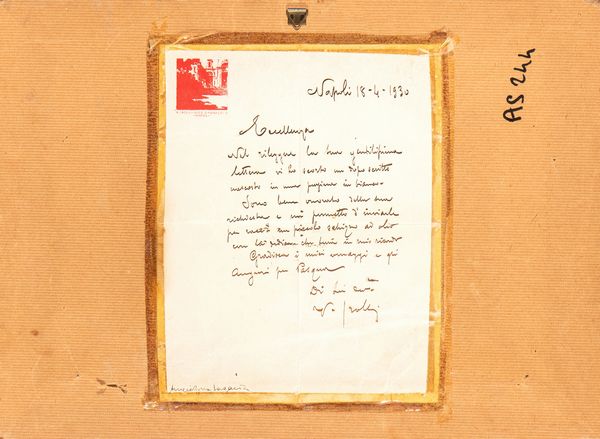 AS 244
Napoli 18-4-1930
Eccellenza
Nel rileggere la sua gentilissima
lettera vi ho scorto un dopo scritto
nascosto in una pagina in bianco.
Sono bene onorato della sua
richiesta e mi permetto d'inviarle
per mezzo un piccolo schizzo ad olio
con la dedica che
Gradisca i miei omaggi e gli
Auguri per Pasqua
Di Lei